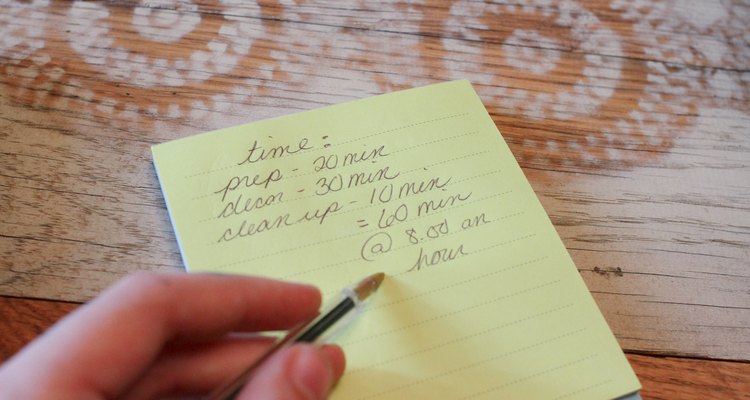 time:
prep - 20 min
decor - 30 min
clean up - 10 min
= 60 min
@ 8.00 an
hour